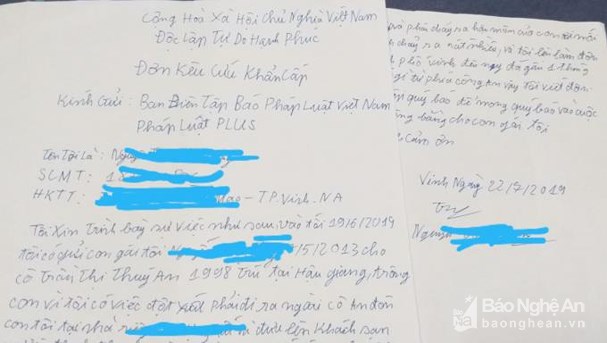 Cộng Hoà Xã Hội Chủ Nghĩa Việt Nam
Độc Lập Tự Do Hạnh Phúc
Đơn Kêu Cứu Khẩn Cấp
Kính Gửi: Ban Biên Tập Báo Pháp Luật Việt Nam
Pháp Luật PLUS
Tên Tôi Là:
SCMT:
HKTT: - TP. Vinh. NA
Tôi Xin Trình bày sự việc như sau, vào tối 19/6/2019
tôi có gửi con gái tôi /5/2013 cho
cô Trần Thị Thuý An 1998 trú tại Hậu giang, trông
con vì tôi có việc đột xuất phải đi ra ngoài cô An đón
con tôi tại nhà đưa lên khách sạn
chảy ra rất nhiều, và tôi lên làm đơn
phố Vinh đến nay đã gần 1 tháng
gì từ phía công An vậy tôi viết đơn
quý báo để mong quý báo vào cuộc
bằng cho con gái tôi
cảm ơn
Vinh Ngày 22/7/2019
Báo Nghệ An
baonghean.vn